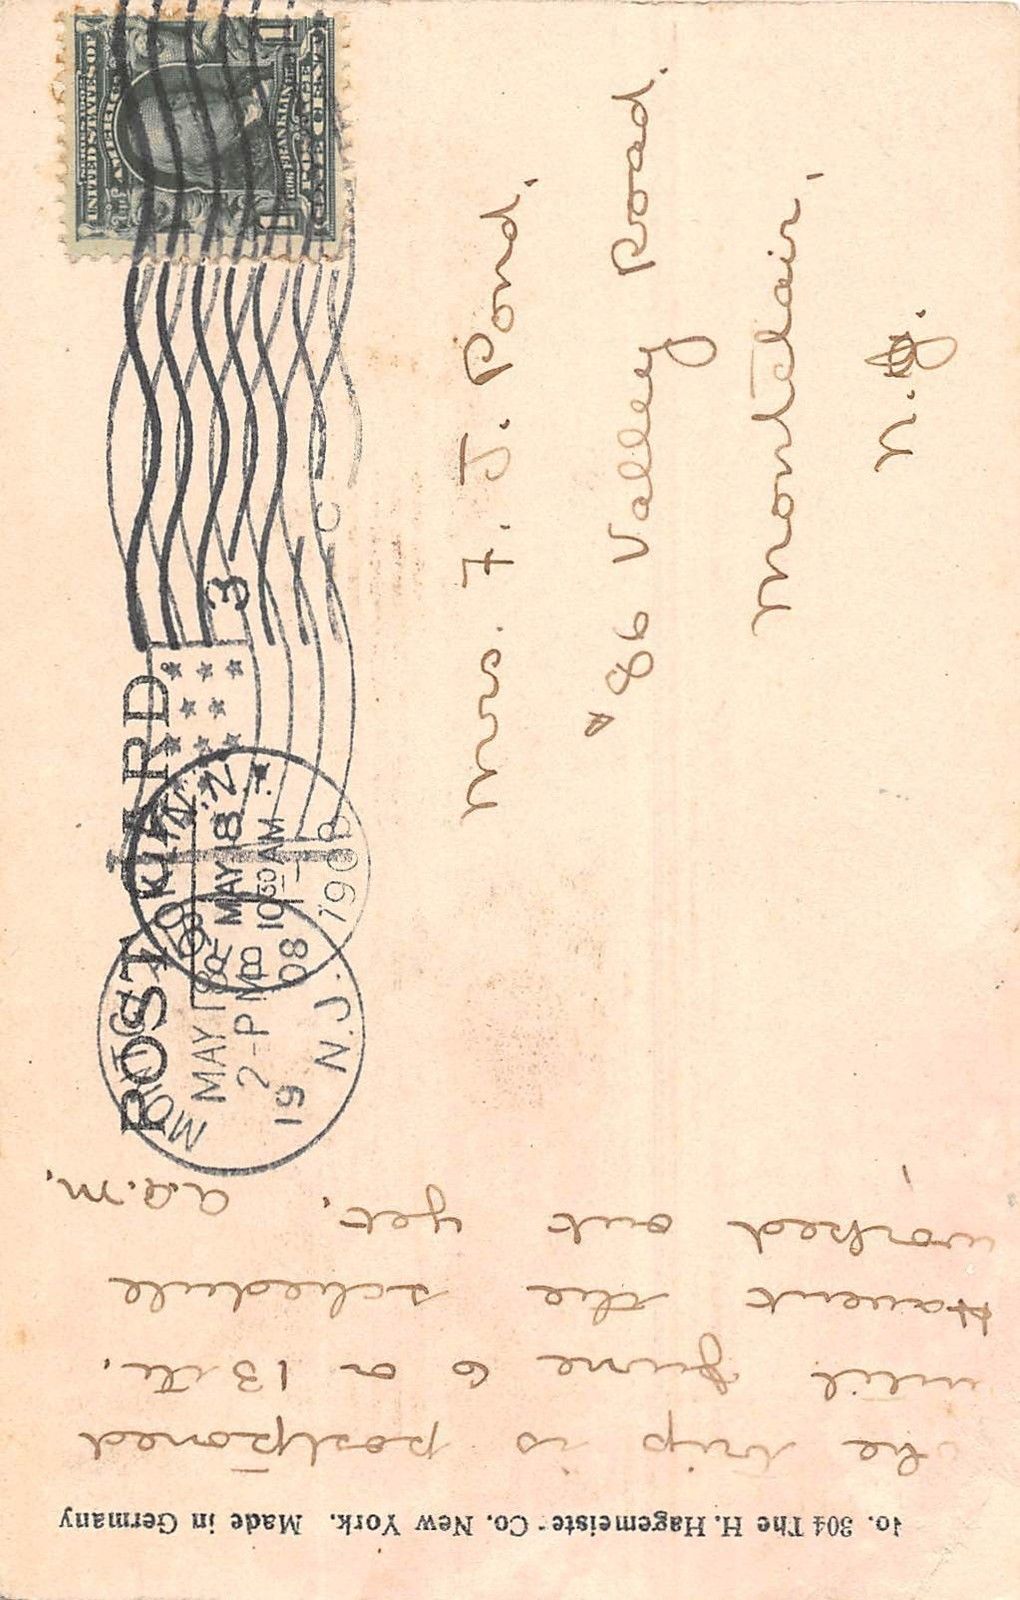 No. 304 The H. Hagemeister Co. New York. Made in Germany
The trip is postponed
until June 6 or 13th.
Havent the schedule
worked out yet. a.a.m.
POST CARD
MAY 18
10 30 AM
1908
3
MAY 18
2-P M
19 08
N.J.
SERIES 1902
UNITED STATES OF
AMERICA
FRANKLIN
POSTAGE
ONE CENT
Mrs. F. J. Pond.
86 Valley Road.
Montclair,
N.J.